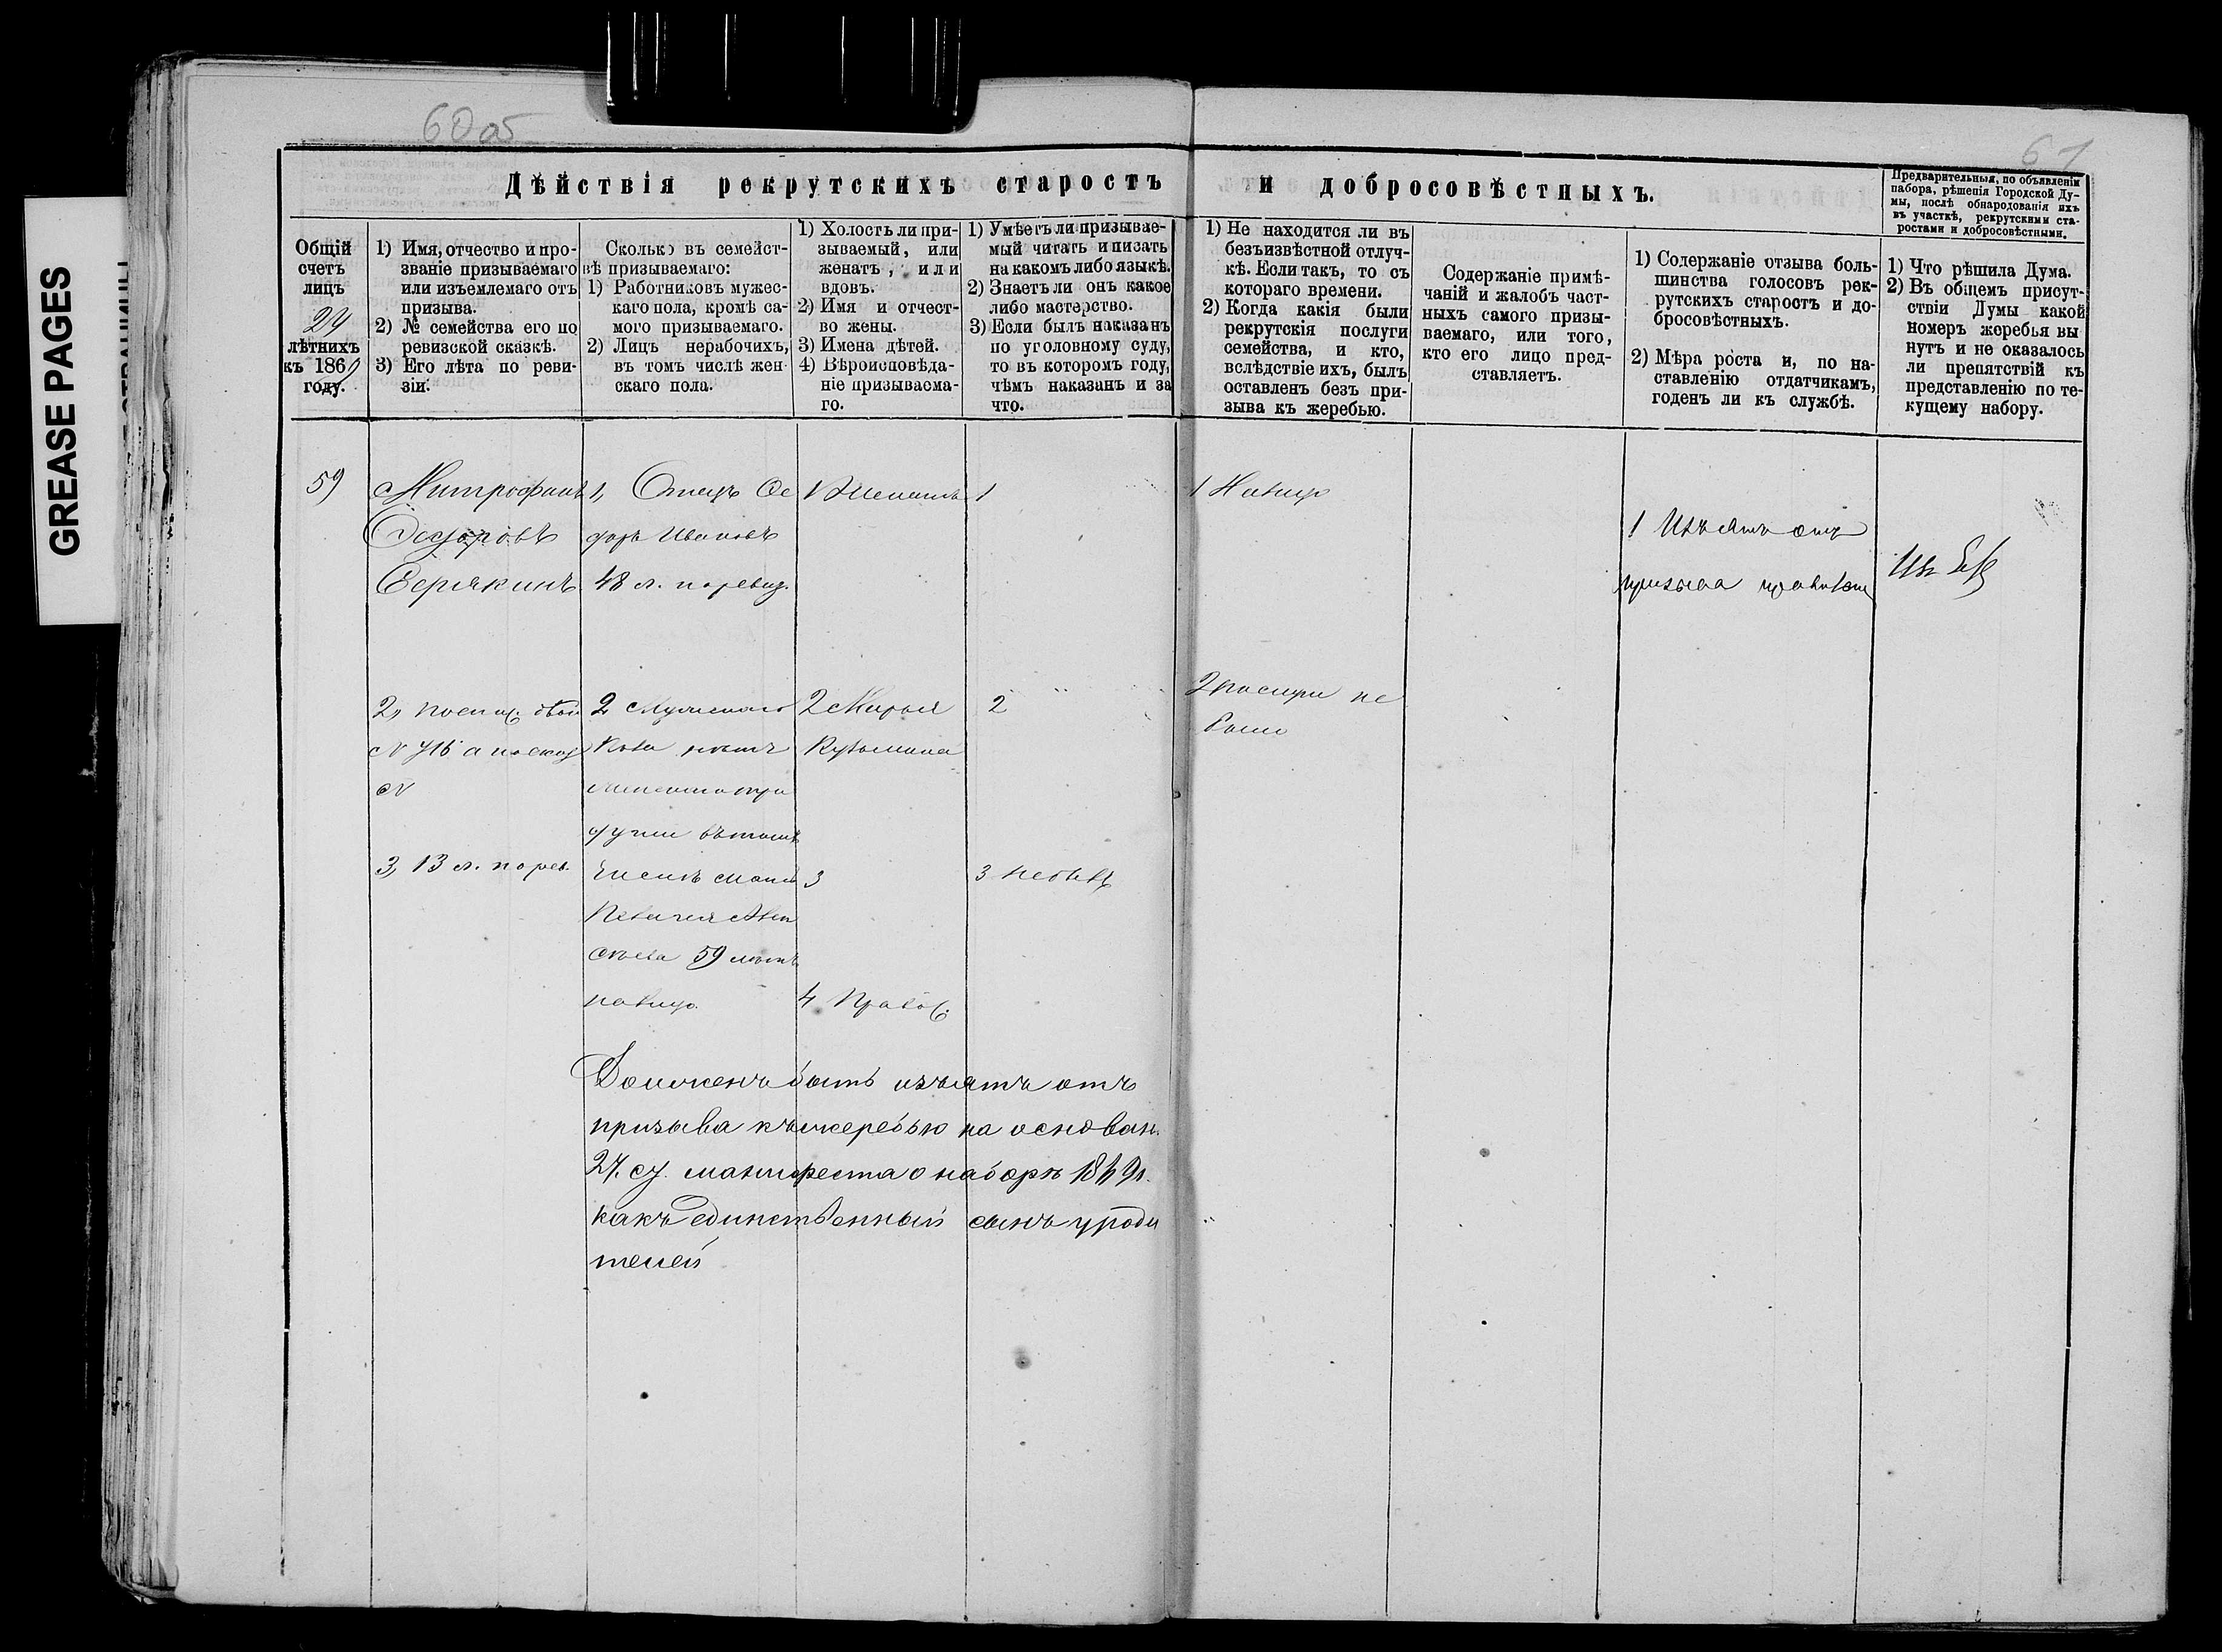 GREASE PAGES
60 об
61
Дѣйствія рекрутскихъ старостъ и добросовѣстныхъ.
Предварительныя, по объявленіи
набора, рѣшенія Городской Ду-
мы, послѣ обнародованія ихъ
въ участкѣ, рекрутскими ста-
ростами и добросовѣстными.
Общій
счетъ
лицъ
24
лѣтнихъ
къ 1869
году.
1) Имя, отчество и про-
званіе призываемаго
или изъемлемаго отъ
призыва.
2) № семейства его по
ревизской сказкѣ.
3) Его лѣта по реви-
зіи.
Сколько въ семейст-
вѣ призываемаго:
1) Работниковъ мужес-
каго пола, кромѣ са-
мого призываемаго.
2) Лицъ нерабочихъ,
въ томъ числѣ жен-
скаго пола.
1) Холостъ ли при-
зываемый, или
женатъ, или
вдовъ.
2) Имя и отчест-
во жены.
3) Имена дѣтей.
4) Вѣроисповѣда-
ніе призываема-
го.
1) Умѣетъ ли призывае-
мый читать и писать
на какомъ либо языкѣ.
2) Знаетъ ли онъ какое
либо мастерство.
3) Если былъ наказанъ
по уголовному суду,
то въ которомъ году,
чѣмъ наказанъ и за
что.
1) Не находится ли въ
безъизвѣстной отлуч-
кѣ. Если такъ, то съ
котораго времени.
2) Когда какія были
рекрутскія послуги
семейства, и кто,
вслѣдствіе ихъ, былъ
оставленъ безъ при-
зыва къ жеребью.
Содержаніе примѣ-
чаній и жалобъ част-
ныхъ самого призы-
ваемаго, или того,
кто его лицо пред-
ставляетъ.
1) Содержаніе отзыва боль-
шинства голосовъ рек-
рутскихъ старостъ и до-
бросовѣстныхъ.
2) Мѣра роста и, по на-
ставленію отдатчикамъ,
годенъ ли къ службѣ.
1) Что рѣшила Дума.
2) Въ общемъ присут-
ствіи Думы какой
номеръ жеребья вы
нутъ и не оказалось
ли препятствій къ
представленію по те-
кущему набору.
59
Митрофанъ
Ѳедоровъ
Серякинъ
2,
№ 716 а по сказ
№
3, 13 л. по рев.
1, Отецъ Ѳе
доръ Ивановъ
48 л. по ревиз.
2 Мужскаго
пола нѣтъ
числѣ мать
59 лѣтъ
налицо
1 Женатъ
2 Марья
Кузьмина
3
4 Правос.
1
2
3 не былъ
1 Налицо
2 послуги не
было
1 Изъятъ отъ
призыва
Должен быть изъятъ отъ
призыва къ жеребью на основан.
27. ст. манифеста о наборѣ 1869 г.
какъ единственный сынъ у роди
телей